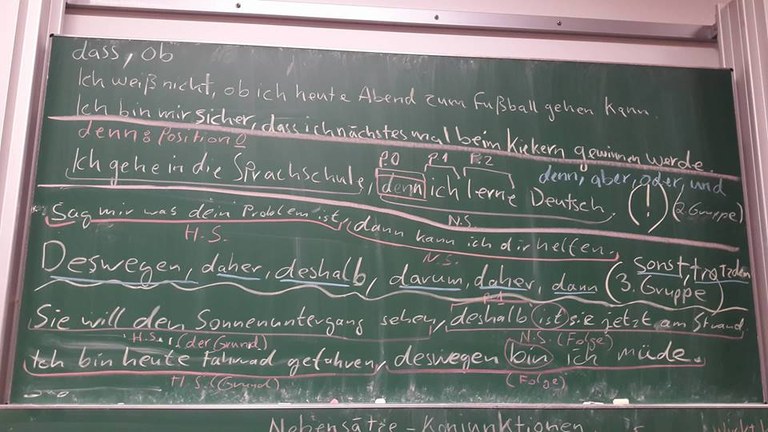 dass, ob
Ich weiß nicht, ob ich heute Abend zum Fußball gehen kann.
Ich bin mir sicher, dass ich nächstes mal beim Kickern gewinnen werde.
denn: Position 0
P.0 P.1 P.2
Ich gehe in die Sprachschule, denn ich lerne Deutsch.
denn, aber, oder, und
(!) (2. Gruppe)
N.S.
Sag mir was dein Problem ist, dann kann ich dir helfen.
H.S. N.S.
Deswegen, daher, deshalb, darum, daher, dann (sonst, trotzdem
3. Gruppe)
P.1
Sie will den Sonnenuntergang sehen, deshalb ist sie jetzt am Strand.
H.S. (der Grund) N.S. (Folge)
Ich bin heute Fahrrad gefahren, deswegen bin ich müde.
H.S. (Grund) (Folge)
Nebensätze - Konjunktionen